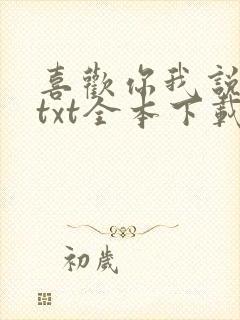 喜歡你我說
txt全本下載
初歲